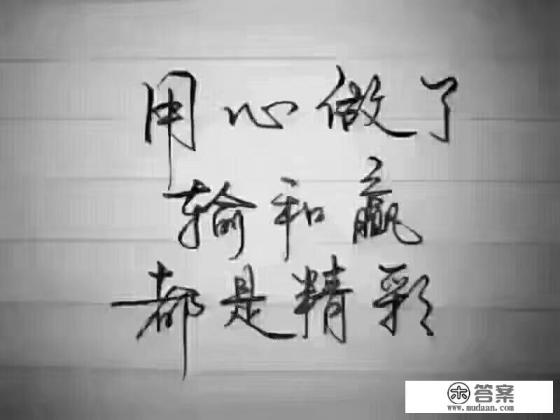 用心做了
输和赢
都是精彩
木答案
www.mudaan.com